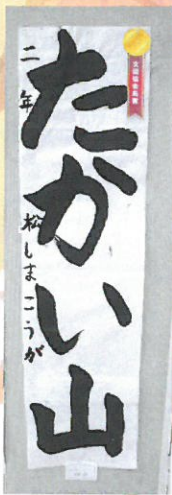 たかい山
二年 松しまこうが